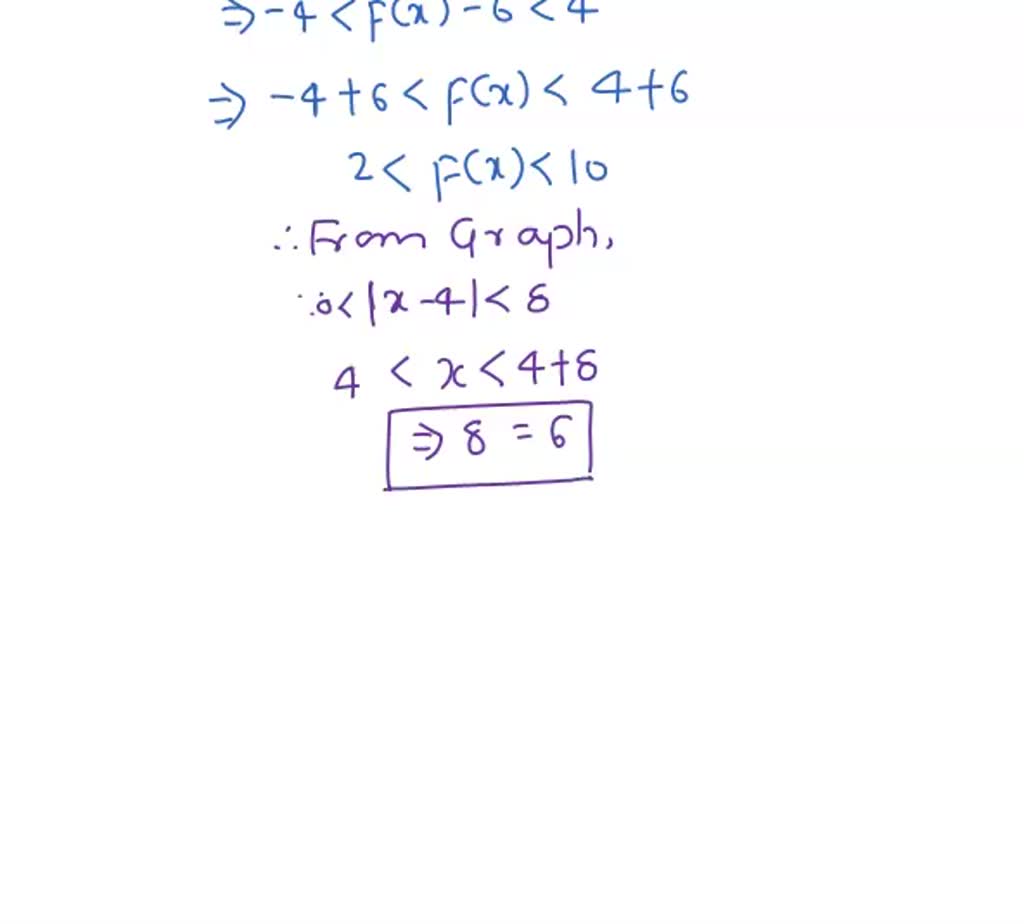 ⇒ -4 < F(x) - 6 < 4
⇒ -4 + 6 < F(x) < 4+6
2 < F(x) < 10
∴ From Graph,
∵ 0 < |x -4| < δ
4 < x < 4+δ
⇒ 8 = 6